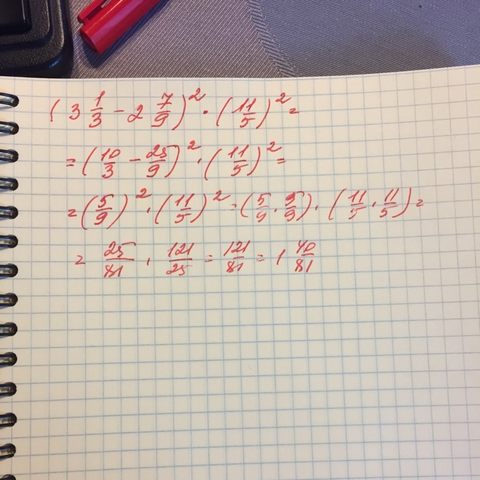 (3 1/3 - 2 7/9)² · (11/5)² =
= (10/3 - 25/9)² · (11/5)² =
= (5/9)² · (11/5)² = (5/9 · 5/9) · (11/5 · 11/5) =
= 25/81 · 121/25 = 121/81 = 1 40/81